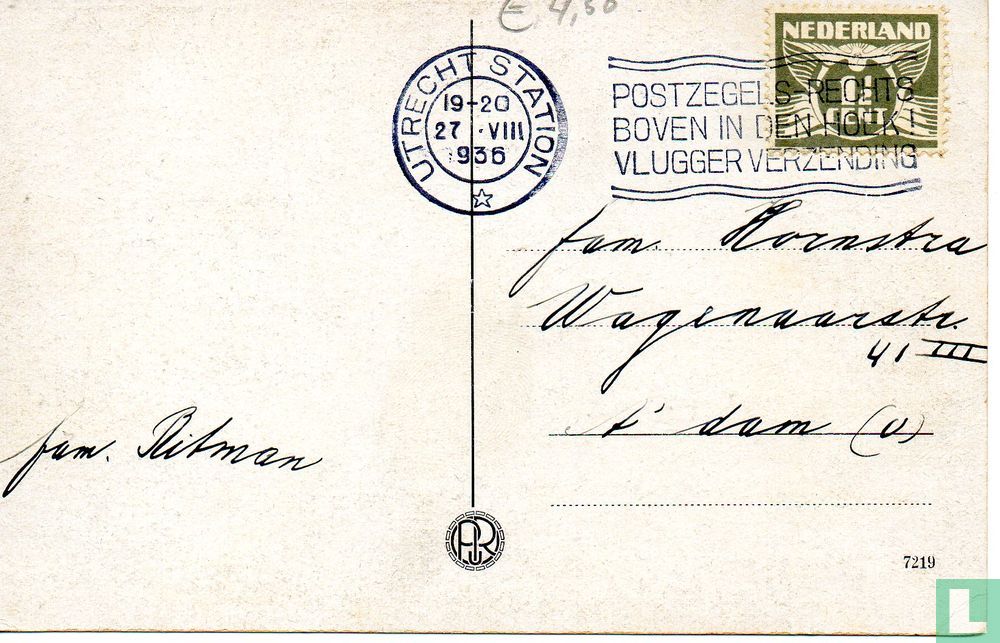 € 4,50
NEDERLAND
CENT
UTRECHT STATION
19-20
27 · VIII
936
POSTZEGELS RECHTS
BOVEN IN DEN HOEK!
VLUGGER VERZENDING
fam. Hoornstra
Wagenaarstr.
41 III
A'dam (O)
fam. Ritman
7219
L